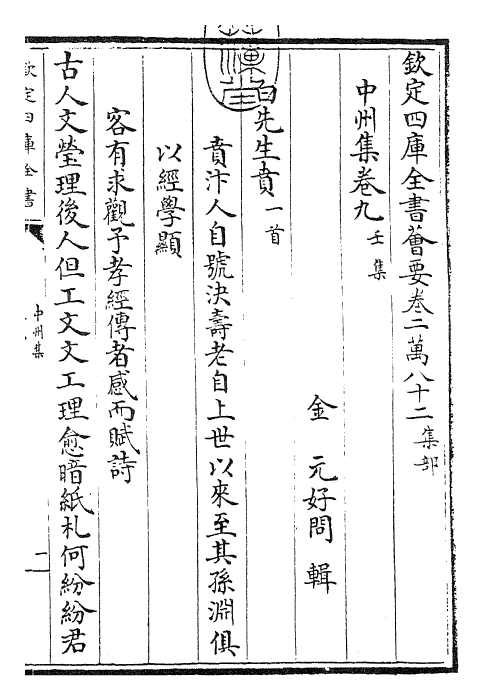 欽定四庫全書薈要卷二萬八十二集部
中州集卷九壬集
金 元好問 輯
白先生賁一首
賁汴人自號決壽老自上世以來至其孫淵俱
以經學顯
客有求觀予孝經傳者感而賦詩
古人文瑩理後人但工文文工理愈暗紙札何紛紛君
欽定四庫全書
中州集
二